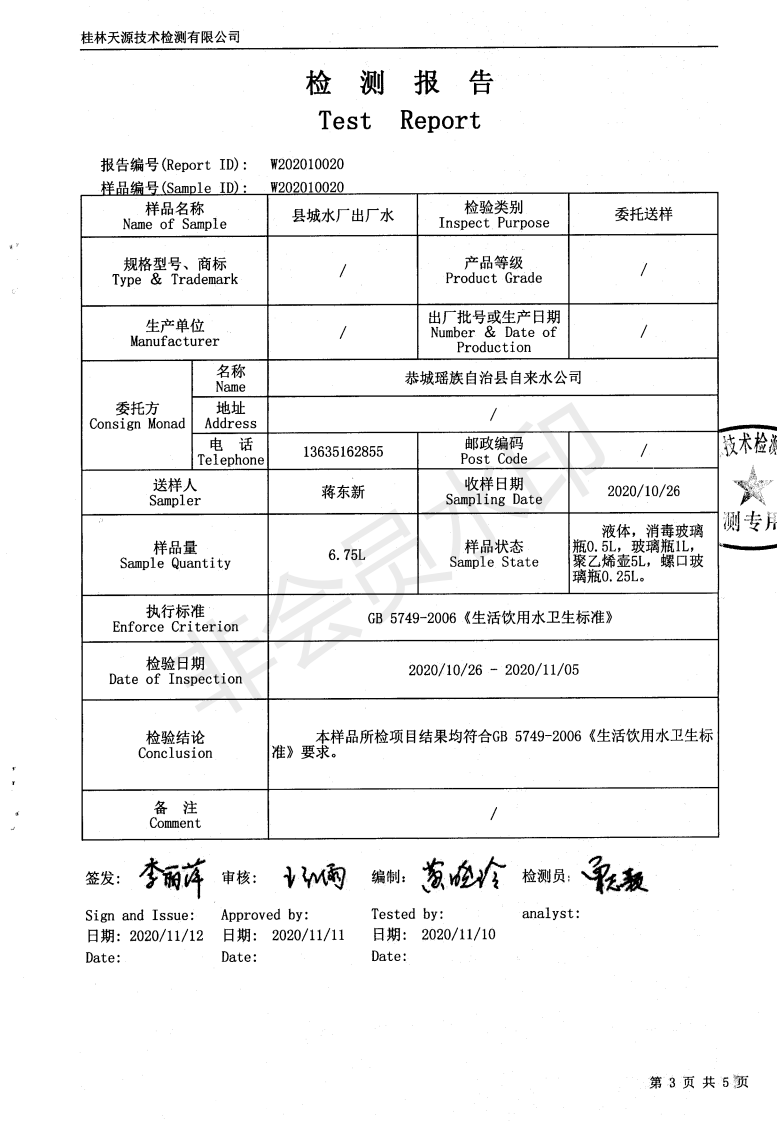 桂林天源技术检测有限公司
检 测 报 告
Test Report
报告编号(Report ID): W202010020
样品编号(Sample ID): W202010020
样品名称
Name of Sample
县城水厂出厂水
检验类别
Inspect Purpose
委托送样
规格型号、商标
Type & Trademark
/
产品等级
Product Grade
/
生产单位
Manufacturer
/
出厂批号或生产日期
Number & Date of
Production
/
委托方
Consign Monad
名称
Name
恭城瑶族自治县自来水公司
地址
Address
/
电 话
Telephone
13635162855
邮政编码
Post Code
/
送样人
Sampler
蒋东新
收样日期
Sampling Date
2020/10/26
样品量
Sample Quantity
6.75L
样品状态
Sample State
液体，消毒玻璃
瓶0.5L，玻璃瓶1L，
聚乙烯壶5L，螺口玻
璃瓶0.25L。
执行标准
Enforce Criterion
GB 5749-2006《生活饮用水卫生标准》
检验日期
Date of Inspection
2020/10/26 - 2020/11/05
检验结论
Conclusion
本样品所检项目结果均符合GB 5749-2006《生活饮用水卫生标
准》要求。
备 注
Comment
/
签发: 李丽萍 审核: 编制: 黄晓玲 检测员:
Sign and Issue: Approved by: Tested by: analyst:
日期: 2020/11/12 日期: 2020/11/11 日期: 2020/11/10
Date: Date: Date:
技术检测
测专用
非会员水印
第 3 页 共 5 页